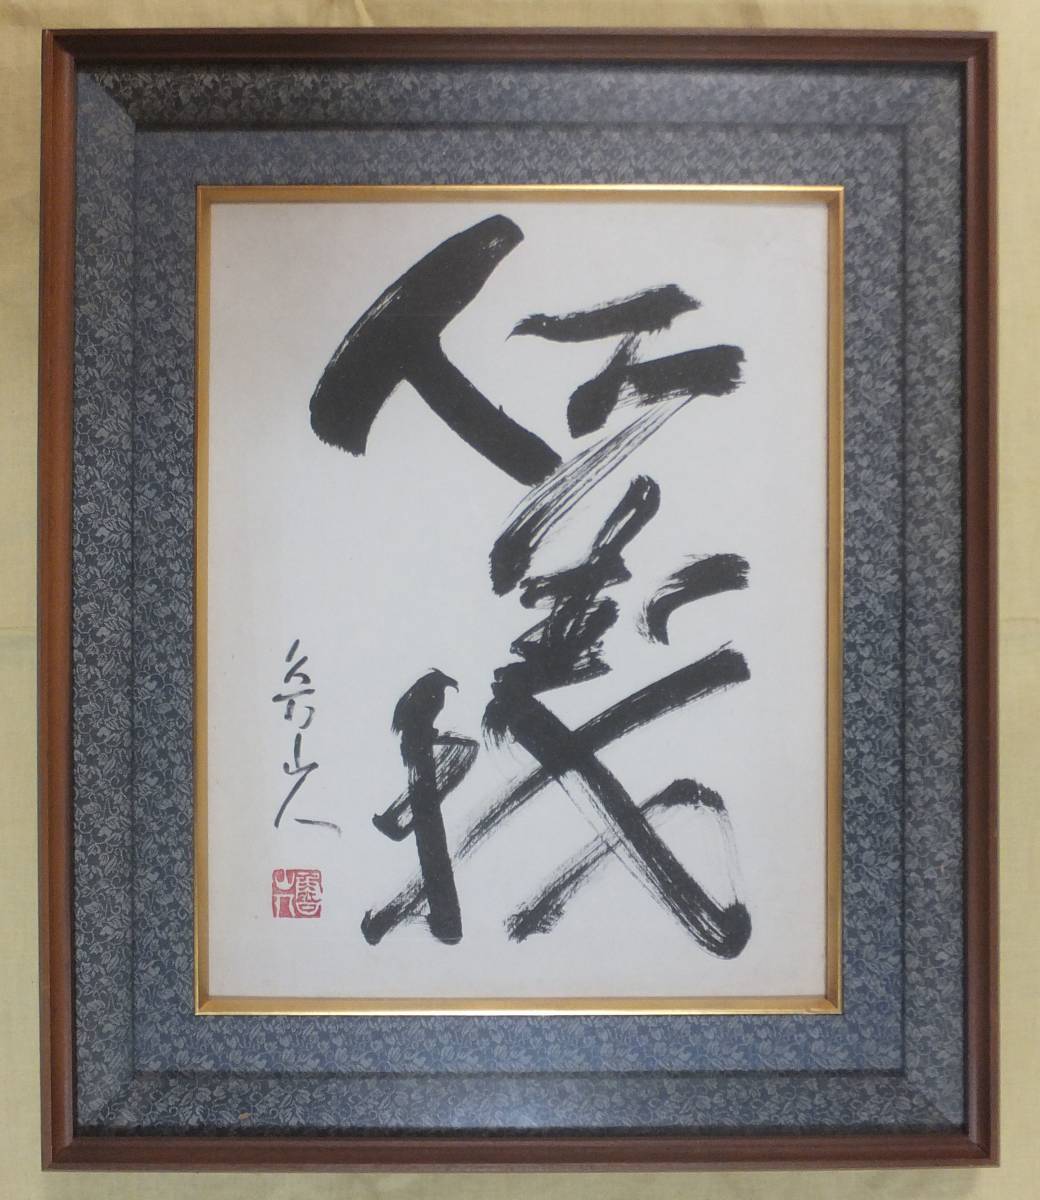 仁義
山人